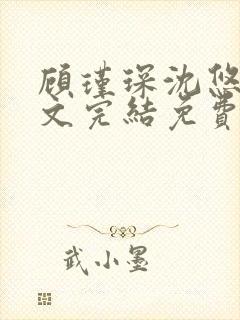 顾瑾琛沈悠
文完结免费
武小墨